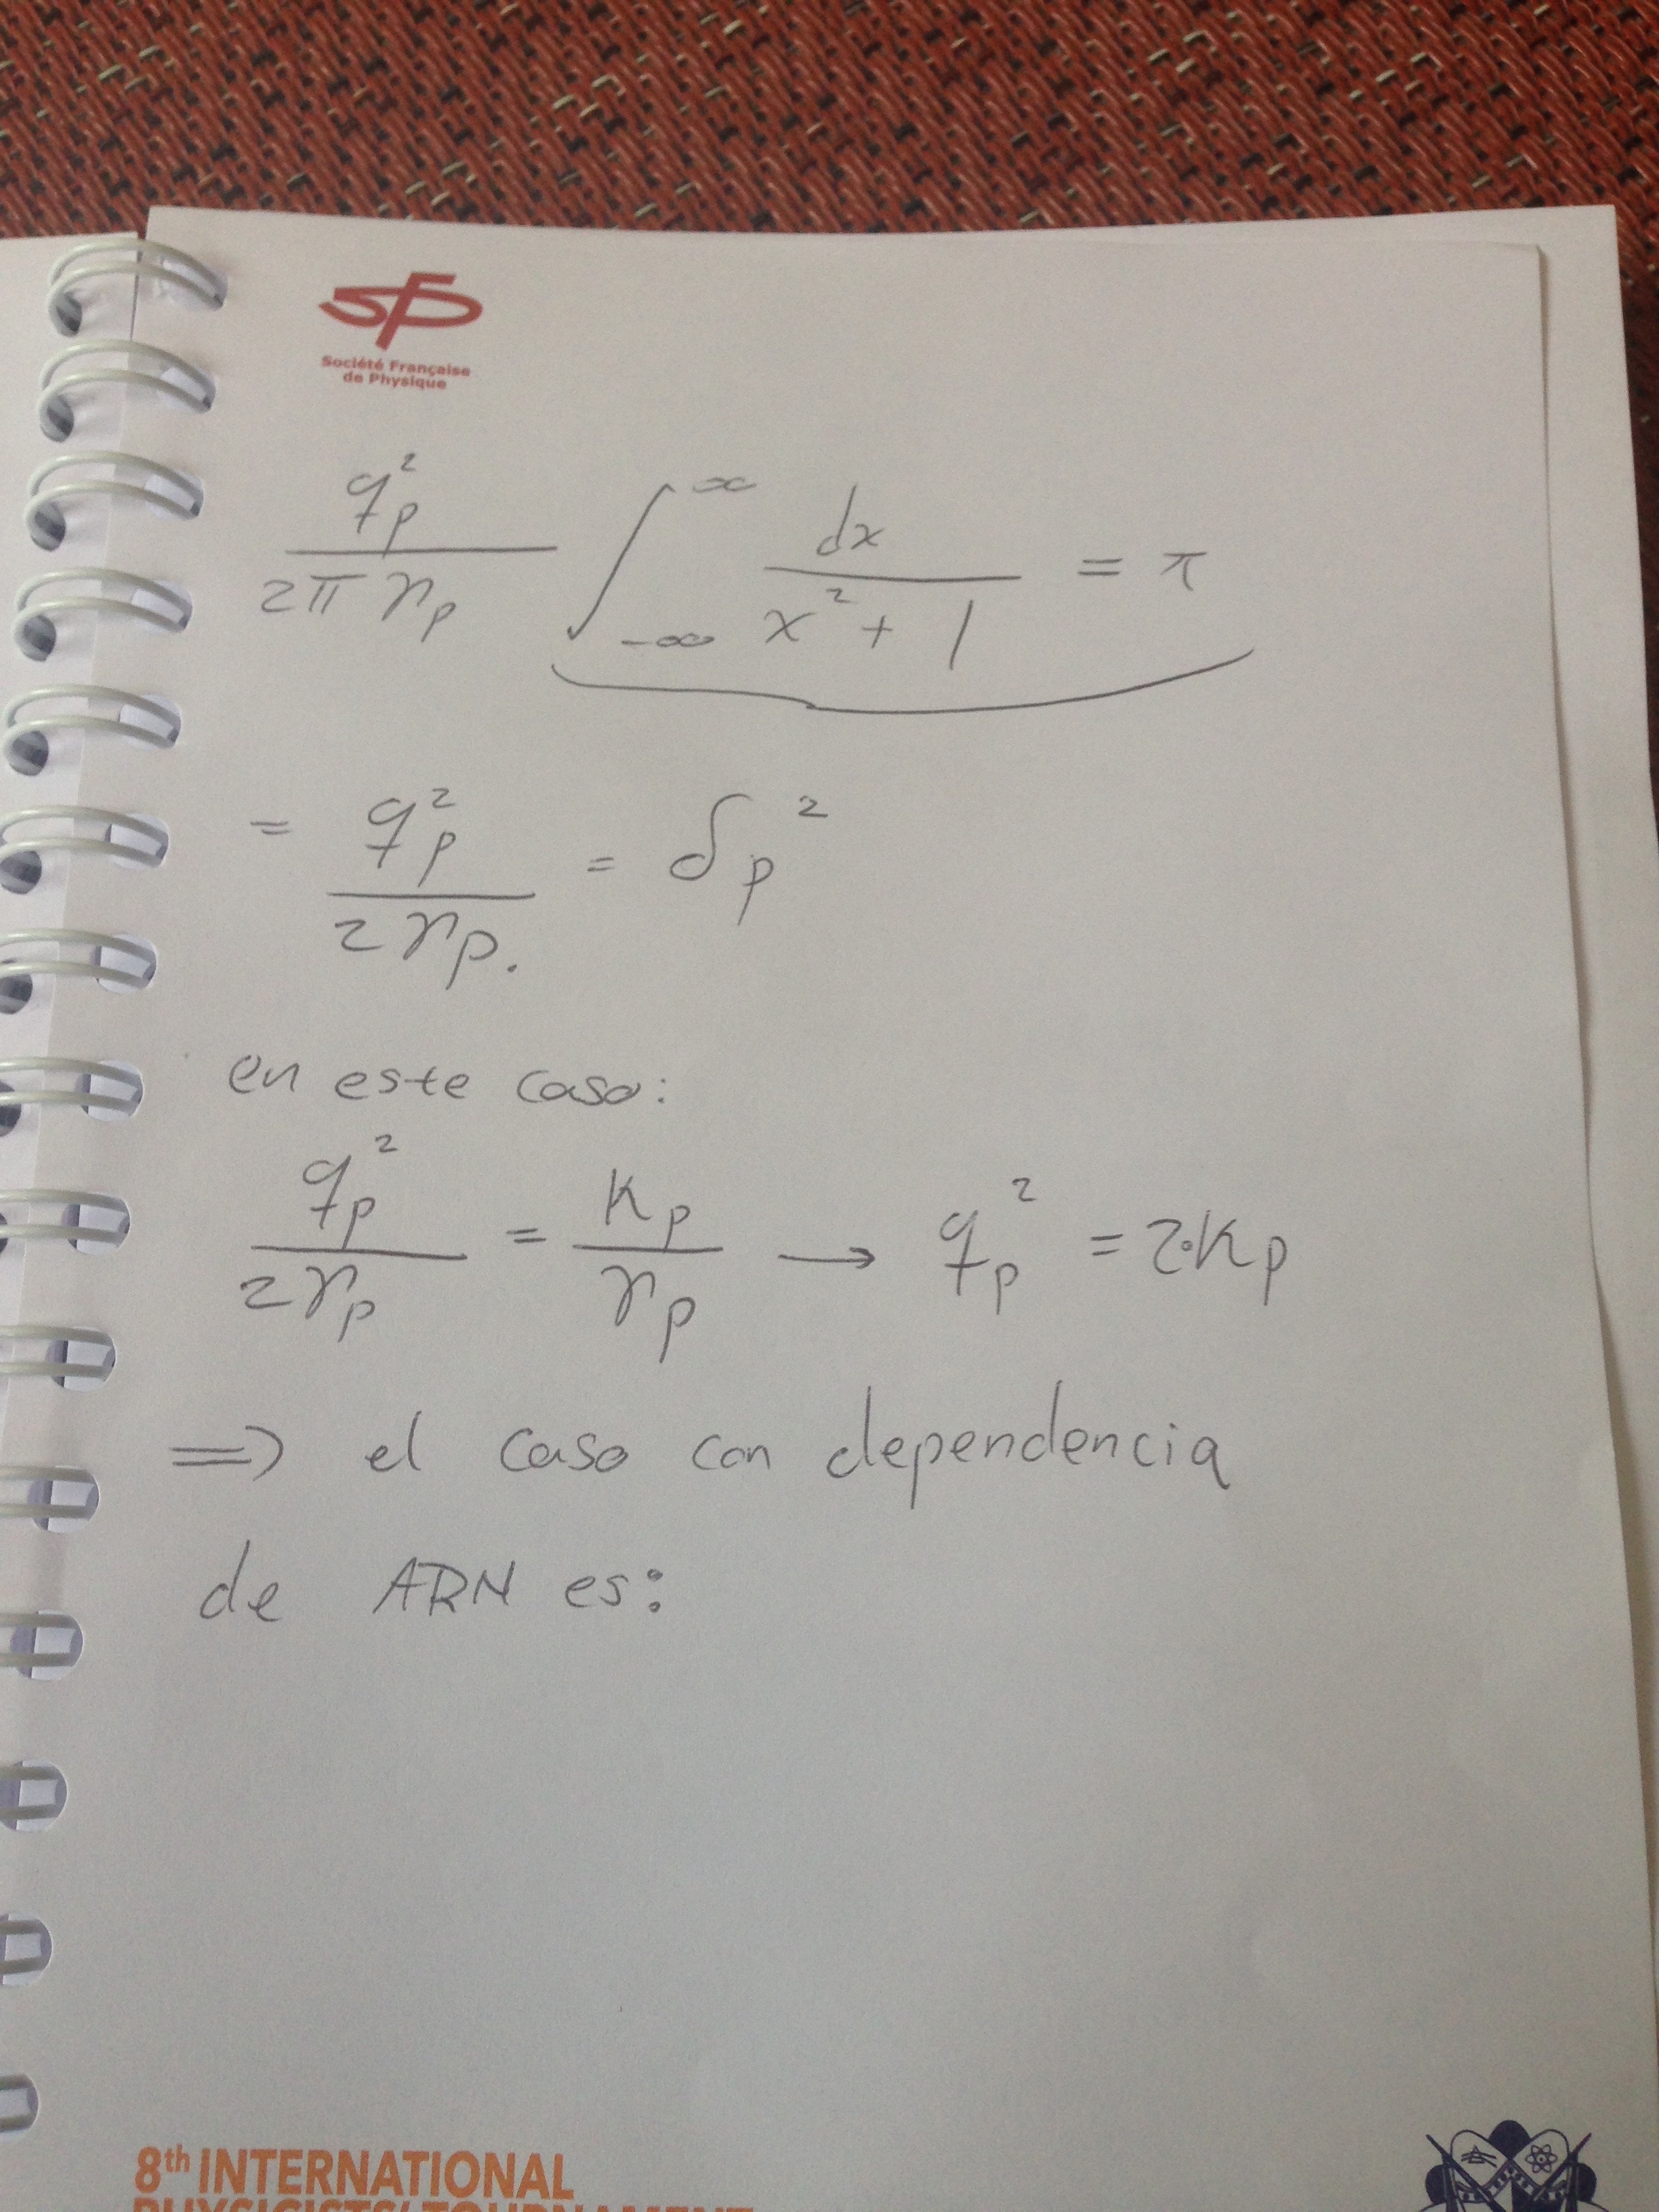 Société Française
de Physique
q_p^2 / 2π γ_p ∫_{-∞}^{∞} dx / x^2 + 1 = π
= q_p^2 / 2γ_p. = δ_p^2
en este caso:
q_p^2 / 2γ_p = K_p / γ_p → q_p^2 = 2·K_p
⇒ el caso con dependencia
de ARN es:
8th INTERNATIONAL
PHYSICISTS' TOURNAMENT